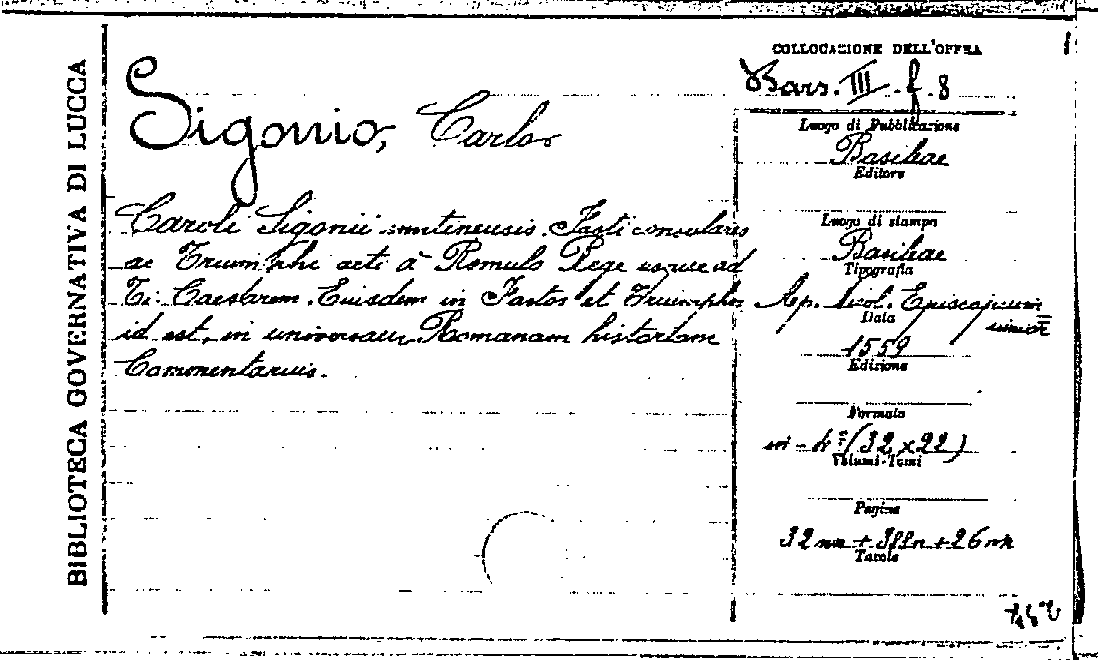 BIBLIOTECA GOVERNATIVA DI LUCCA
Sigonio, Carlo
Caroli Sigonii mutinensis Fasti consulares
ac Triumphi acti à Romulo Rege usque ad
Ti. Caesarem. Eiusdem in Fastos et Triumphos
id est, in universam Romanam historiam
Commentarius.
COLLOCAZIONE DELL'OPERA
Bars. III. f. 8
Luogo di Pubblicazione
Basileae
Editore
Luogo di stampa
Basileae
Tipografia
Ap. Nicol. Episcopium
Data
1559
Edizione
Formato
in-4° (32 x 22)
Volumi-Tomi
Pagine
32 nn + + 26 nn
Tavole